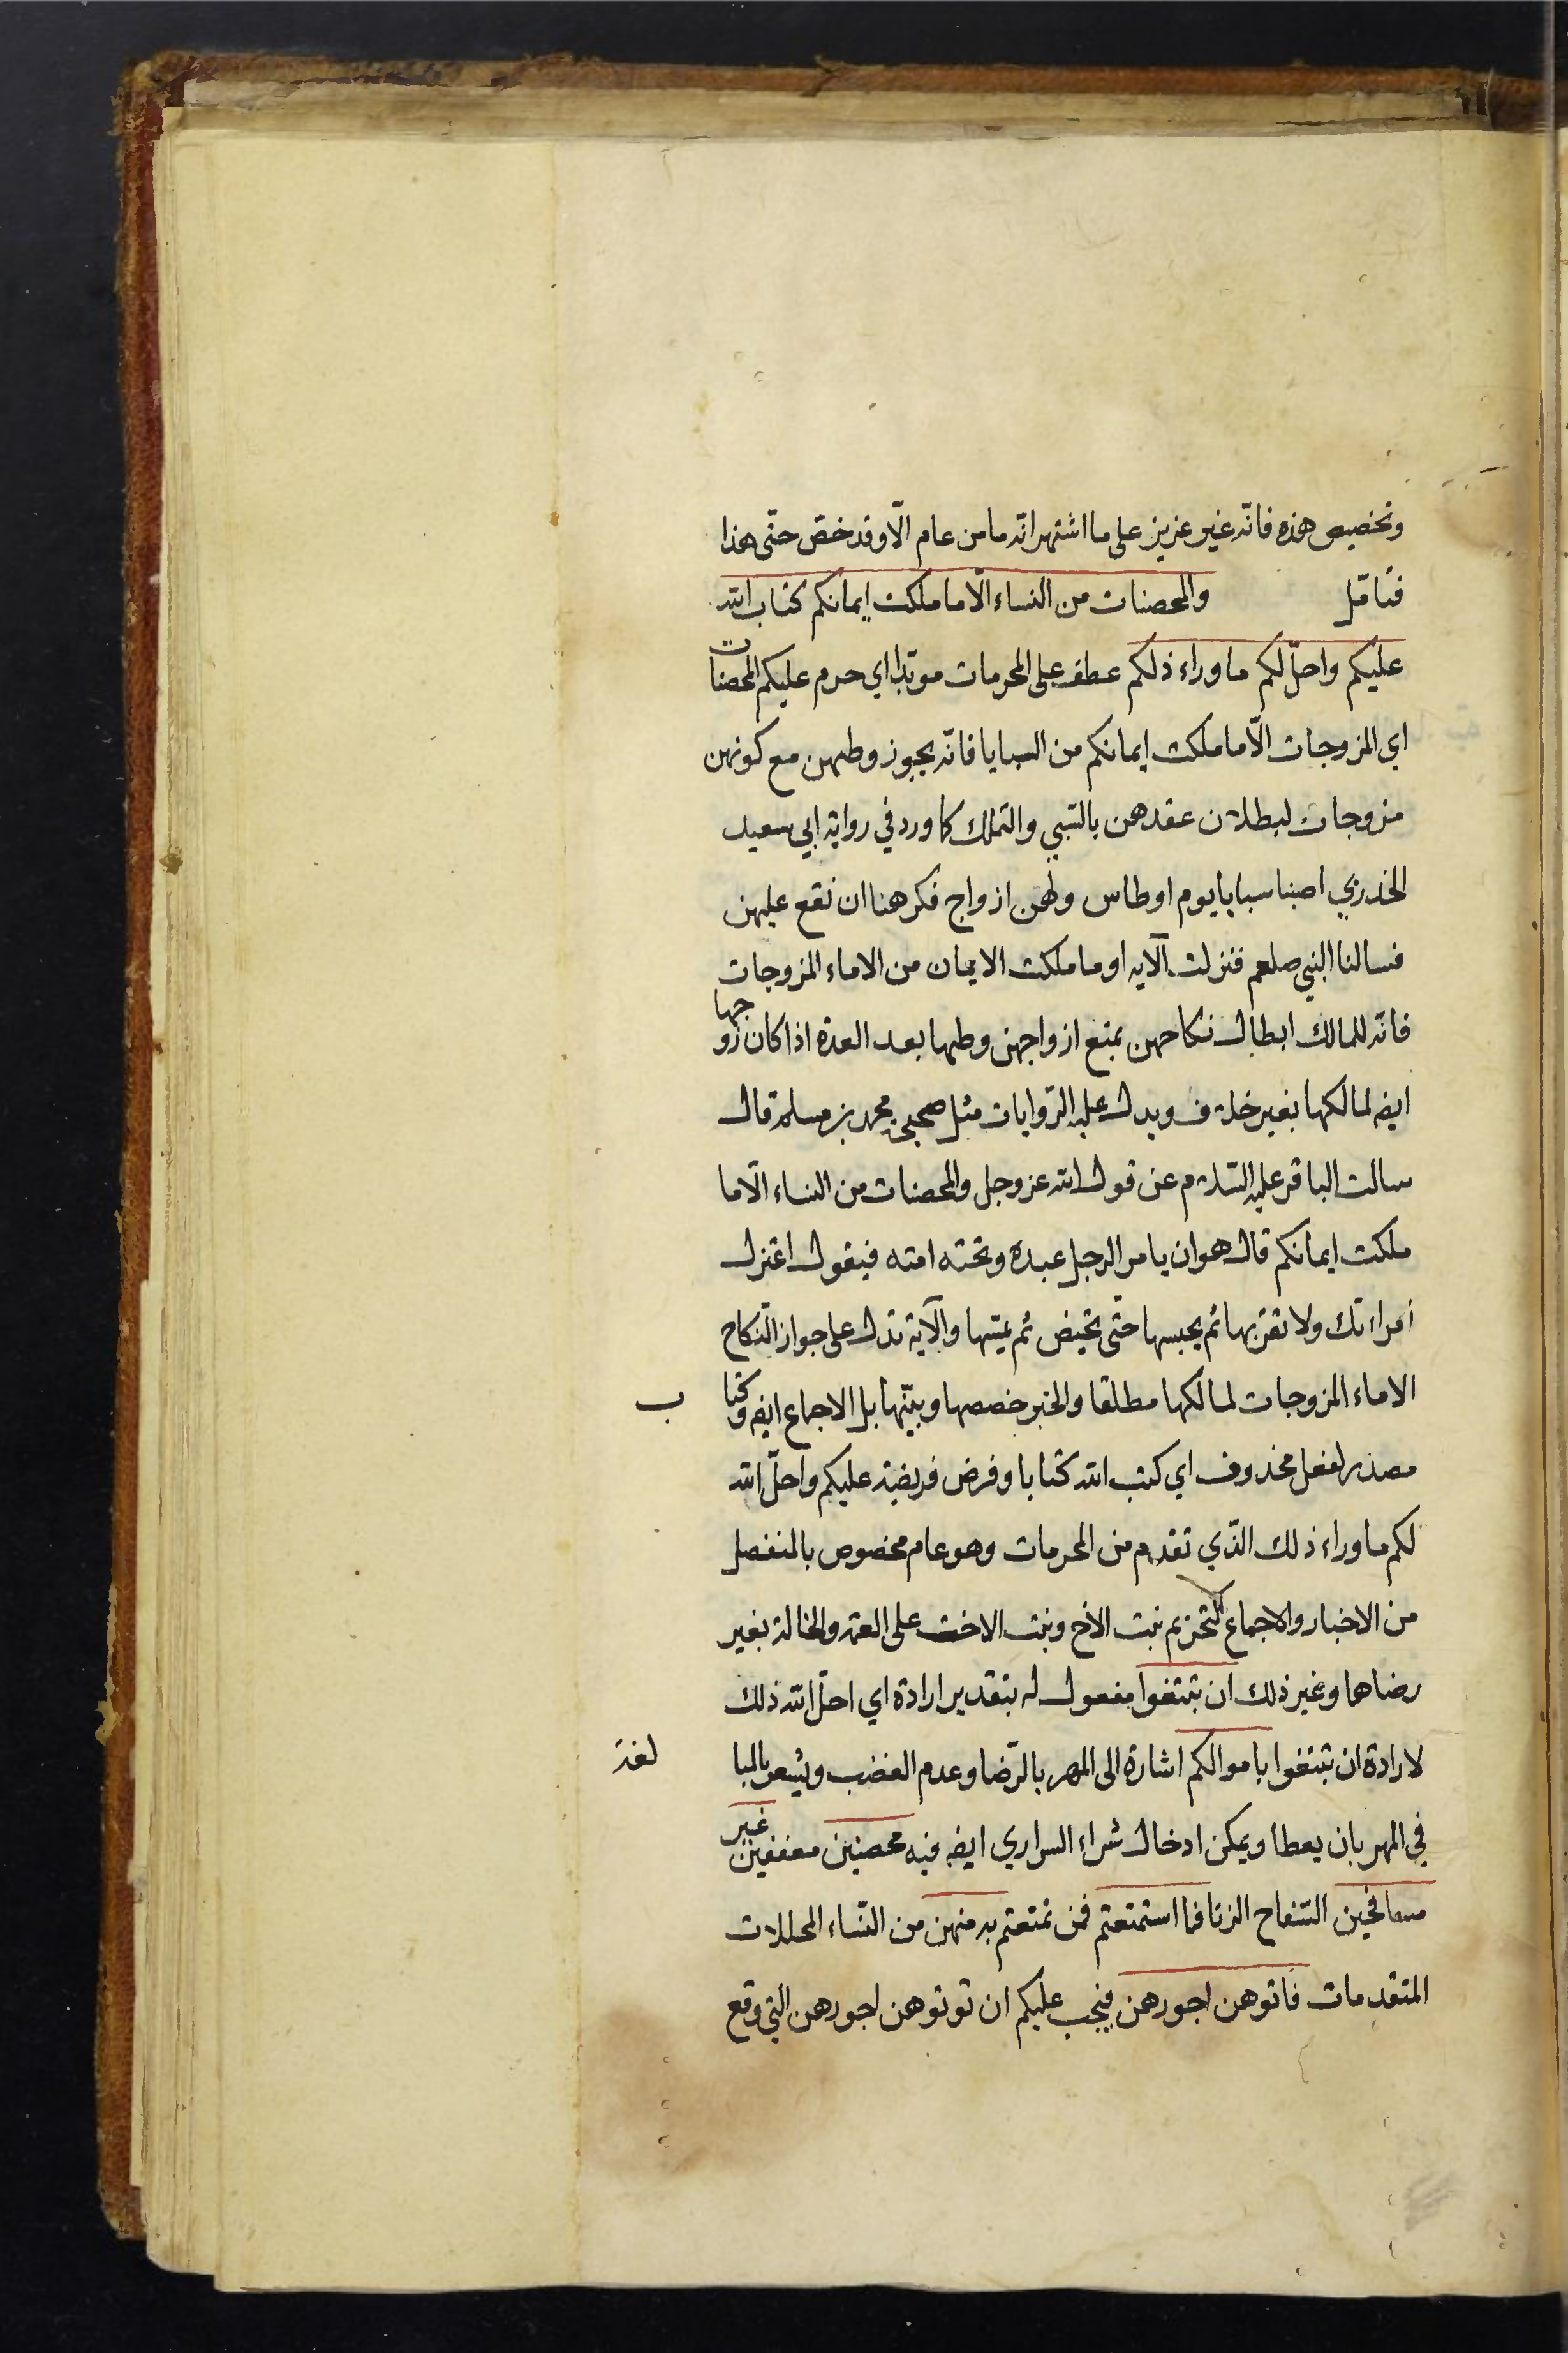 وتخصيص هذه فانّه غير عزيز على ما اشتهر انّه ما من عام الّا وقد خصّ حتّى هذا
فتامّل والمحصنات من النساء الّا ما ملكت ايمانكم كتاب الله
عليكم واحلّ لكم ما وراء ذلكم عطف على المحرمات موبّدا اي حرم عليكم المحصنات
اي المزوجات الّا ما ملكت ايمانكم من السبايا فانّه يجوز وطيهن مع كونهن
مزوجات لبطلان عقدهن بالسّبي والتملك كما ورد في رواية ابي سعيد
الخدري اصبنا سبايا يوم اوطاس ولهن ازواج فكرهنا ان نقع عليهن
فسالنا النبي صلعم فنزلت الآيه او ما ملكت الايمان من الاماء المزوجات
فانّه للمالك ابطال نكاحهن بمنع ازواجهن وطيها بعد العدة اذا كان زوجها
ايضه لمالكها بغير خلاف ويدل عليه الرّوايات مثل صحيحة محمد بن مسلم قال
سالت الباقر عليه السّلام عن قول الله عز وجل والمحصنات من النساء الّا ما
ملكت ايمانكم قال هو ان يامر الرجل عبده وتحته امته فيقول اعتزل
امراتك ولا تقربها ثم يحبسها حتّى تحيض ثم يمسّها والآية تدل على جواز النكاح
الاماء المزوجات لمالكها مطلقا والخبر خصصها وبيّنها بل الاجماع ايضه وكتاب
مصدر لفعل محذوف اي كتب الله كتابا وفرض فريضة عليكم واحلّ الله
لكم ما وراء ذلك الذّي تقدم من المحرمات وهو عام مخصوص بالمنفصل
من الاخبار والاجماع كتحريم بنت الاخ وبنت الاخت على العمّه والخالة بغير
رضاهما وغير ذلك ان تبتغوا مفعول له بتقدير ارادة اي احلّ الله ذلك
لارادة ان تبتغوا باموالكم اشارة الى المهر بالرّضا وعدم الغضب ويشعر بالمبالغة
في المهر بان يعطا ويمكن ادخال شراء السراري ايضه فيه محصنين معففين غير
مسافحين السّفاح الزنا فما استمتعتم فمن تمتعتم به منهن من النّساء المحللات
المتقدمات فاتوهن اجورهن فيجب عليكم ان توتوهن اجورهن التي وقع